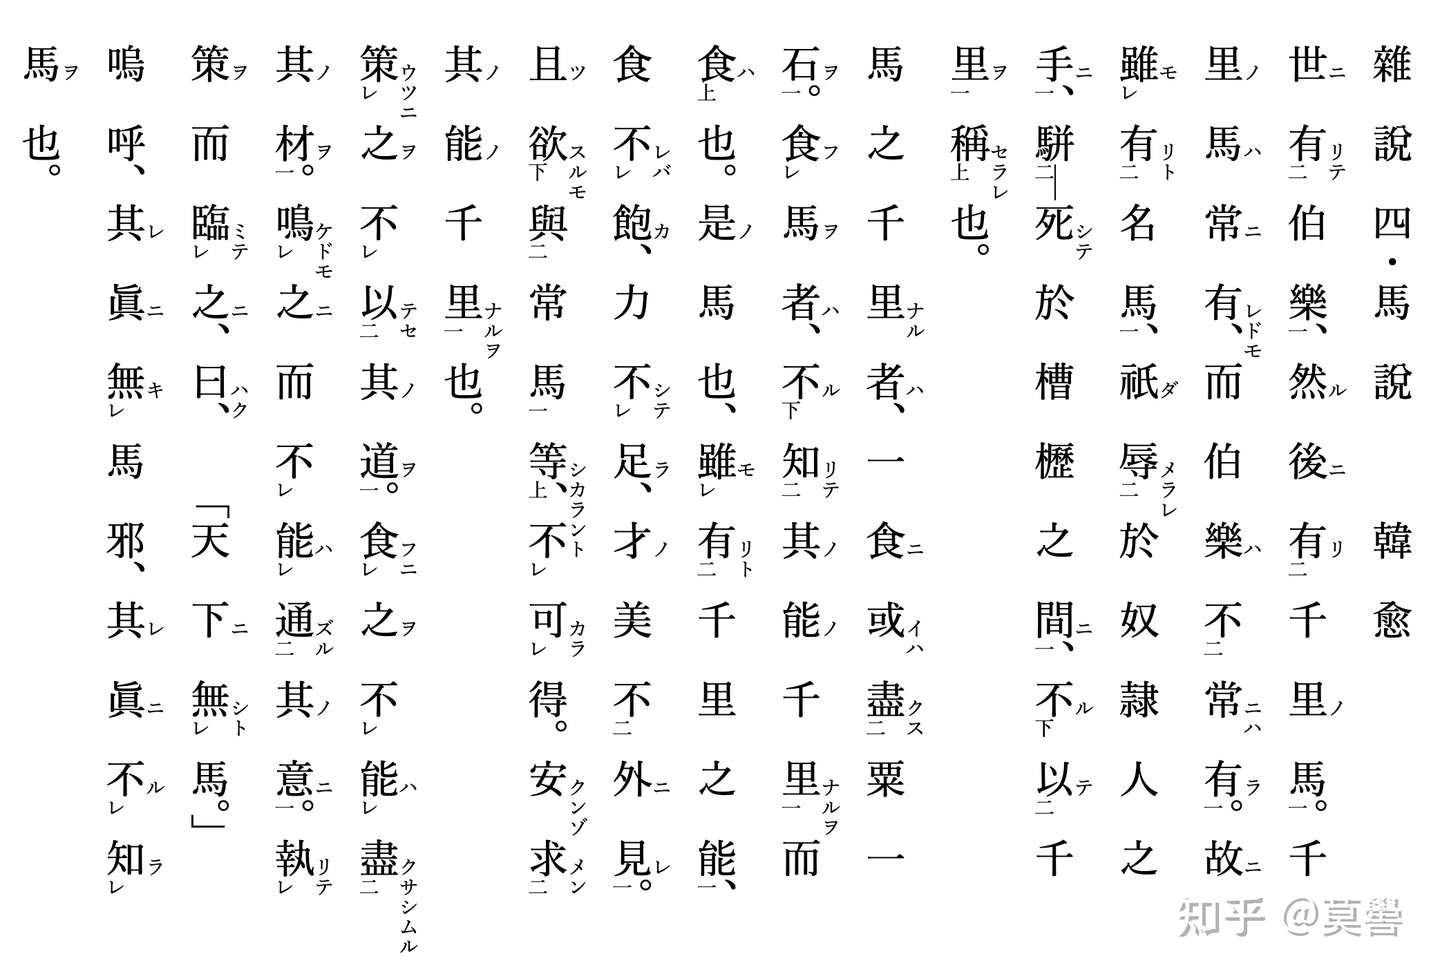 雜說四・馬說　韓愈
世ニ有リテ二伯樂一、然ル後ニ有リ二千里ノ馬一。千
里ノ馬ハ常ニ有レドモ、而伯樂ハ不二常ニハ有ラ一。故ニ
雖モレ有リト二名馬一、祇ダ辱メラレ二於奴隷人之
手ニ一、駢二―死シテ於槽櫪之間ニ一、不ル下以テ二千
里ヲ一稱セラレ上也。
馬之千里ナル者ハ、一食ニ或イハ盡クス二粟一
石ヲ一。食フレ馬ヲ者ハ、不ル下知リテ二其ノ能ノ千里ナルヲ一而
食ハ上也。是ノ馬也、雖モレ有リト二千里之能一、
食不レバレ飽カ、力不シテレ足ラ、才ノ美不二外ニ見レ一。
且ツ欲スルモ下與二常馬一等シカラント上、不レ可カラレ得。安クンゾ求メン二
其ノ能ノ千里ナルヲ一也。
策ウツニレ之ヲ不レ以テセ二其ノ道ヲ一。食フニレ之ヲ不レ能ハレ盡クサシムル二
其ノ材ヲ一。鳴ケドモレ之ニ而不レ能ハレ通ズル二其ノ意ニ一。執リテレ
策ヲ而臨ミテレ之ニ、曰ハク、「天下ニ無シトレ馬。」
嗚呼、其レ眞ニ無キレ馬邪、其レ眞ニ不ルレ知ラレ
馬ヲ也。
知乎 @莫譽